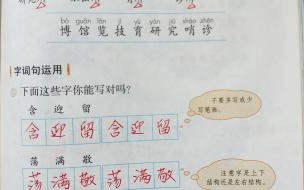 bó guǎn lǎn jì yù yán jiū shào zhěn
博 馆 览 技 育 研 究 哨 诊
字词句运用
下面这些字你能写对吗？
含 迎 留
不要多写或少写笔画。
含 迎 留 含 迎 留
荡 满 敬
注意字是上下结构还是左右结构。
荡 满 敬 荡 满 敬